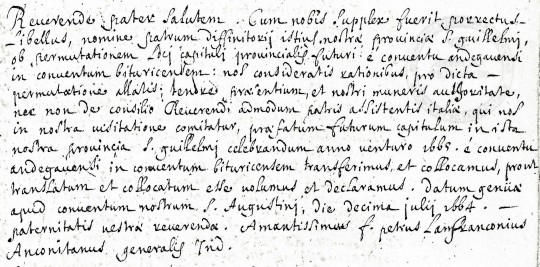 Reverende pater salutem. Cum nobis supplex fuerit porrectus-
Libellus, nomine patrum diffinitorij istius nostræ provinciæ S. guillelmj,
ob permutationem Locj capituli provincialis futuri é conventu andegavensi
in conventum bituricensem: nos consideratis rationibus, pro dicta -
permutatione allatis; tenore præsentium, et nostri muneris authoritate,
nec non de consilio Reverendi admodum patris assistentis italiæ, qui nos
in nostra visitatione comitatur, præfatum futurum capitulum in ista
nostra provincia S. guillelmj celebrandum anno venturo 1665. é conventu
andegavensi in conventum bituricensem transferimus, et collocamus, prout
translatum et collocatum esse volumus et declaramus. Datum genuæ
apud conventum nostrum S. Augustinj, die decima julij 1664. -
paternitatis vestræ reverendæ. Amantissimus f. petrus Lanfranconius
Anconitanus generalis Ind.